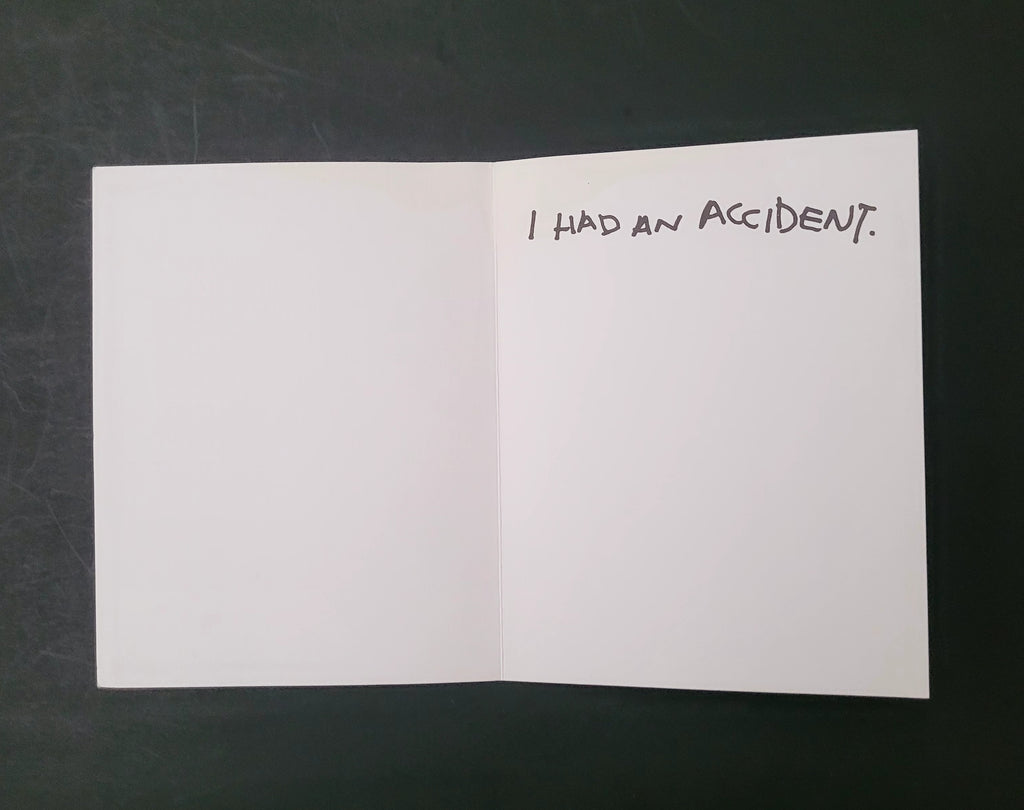 I HAD AN ACCIDENT.